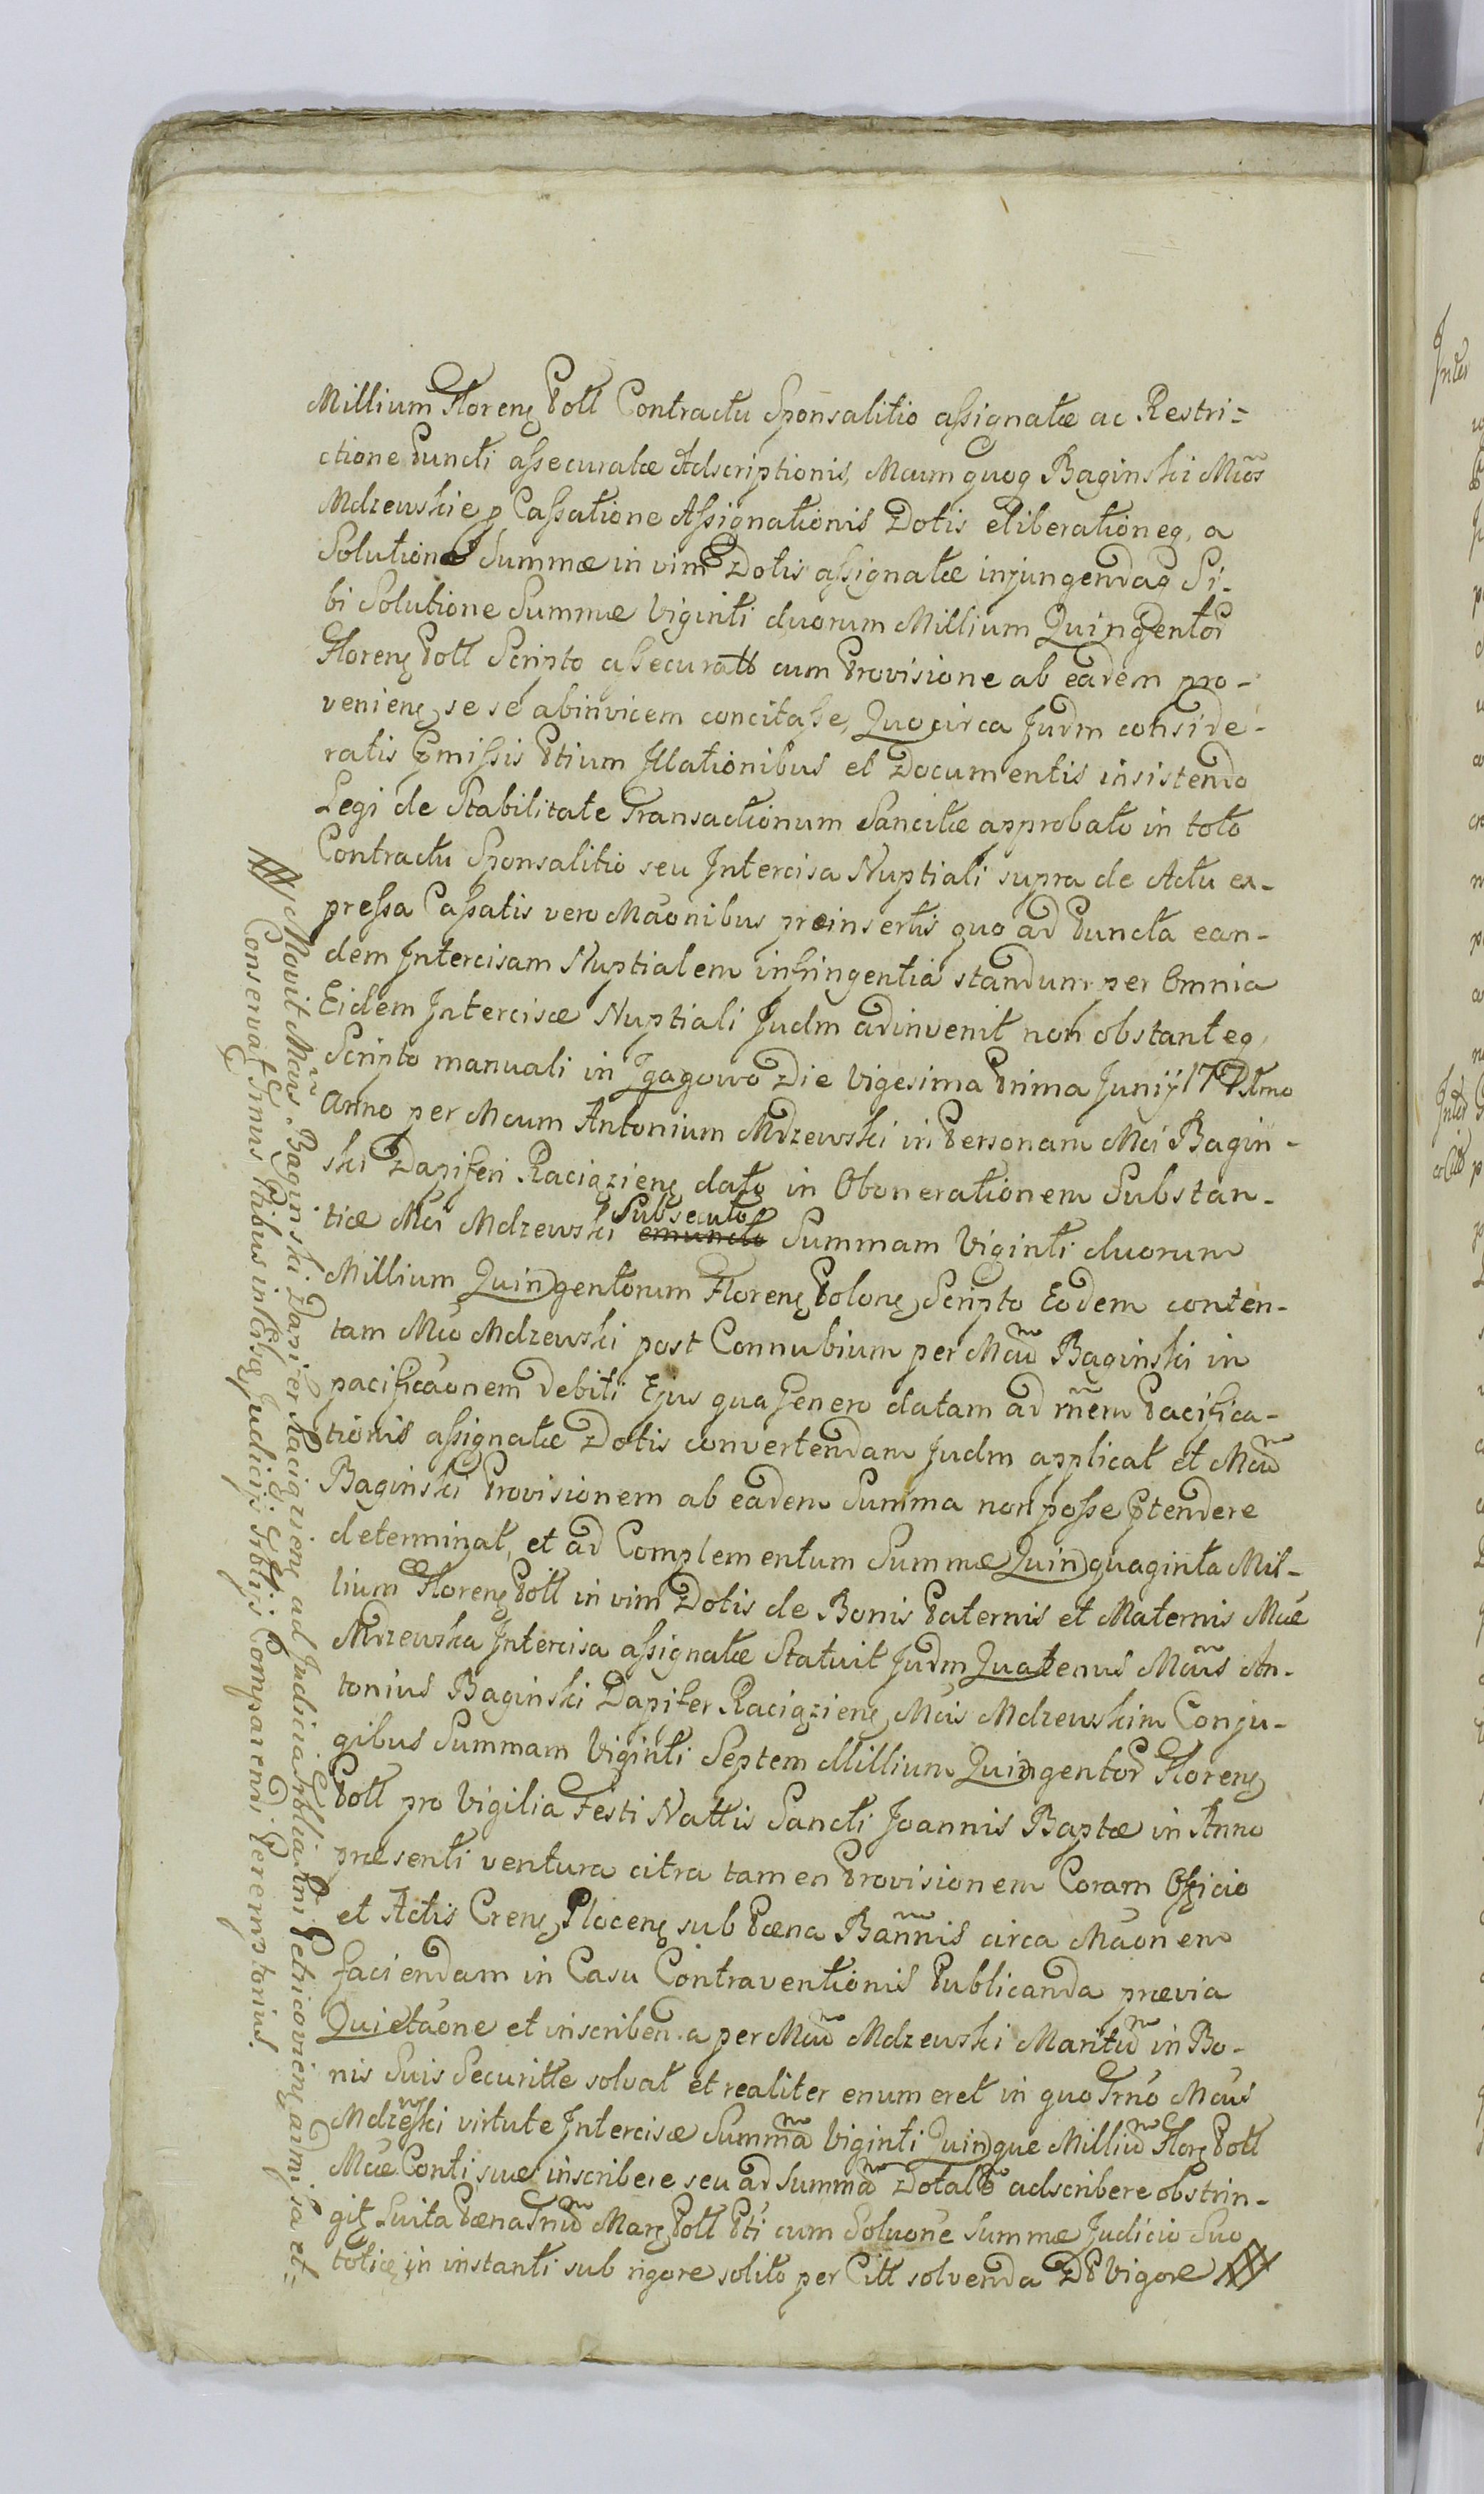 Millium Floreng Poll Contractu Sponsalitio assignatæ ac Restri-
ctione Puncti assecuratæ Adscriptionis, Mcum quoq Baginski Mcos
Mdzewskie p Cassatione Assignationis Dotis eliberationeq, a
Solutione Summæ in vim Dotis assignatæ injungendaq Si-
bi Solutione Summæ Viginti duorum Millium Quingentor
Floreng Poll Scripto assecuratt cum Provisione ab eadem pro-
venieng se se abinvicem concitasse, Quocirca Judm conside-
ratis Pmissis Ptium Illationibus et Documentis insistendo
Legi de Stabilitate Transactionum Sancitæ approbato in toto
Contractu Sponsalitio seu Intercisa Nuptiali supra de Actu ex-
pressa Cassatis vero Mãonibus præinsertis quo ad Puncta ean-
dem Intercisam Nuptialem infringentia standum per Omnia
Eidem Intercisæ Nuptiali Judm adinvenit non obstanteq,
Scripto manuali in Die Vigesima Prima Junij
Anno per Mcum Antonium Mdzewski in Personam Mci Bagin-
ski Dapiferi Raciązieng dato in Obonerationem Substan-
tiæ Mci Mdzewski Subsecuto emuncto Summam Viginti duorum
Millium Quingentorum Floreng Polong Scripto Eodem conten-
tam Mco Mdzewski post Connubium per Mcũ Baginski in
pacificãonem Debiti Ejus qua Genero datam ad rñem Pacifica-
tionis assignatæ Dotis convertendam Judm applicat et Mcũ
Baginski Provisionem ab eadem Summa non posse Ptendere
determinat, et ad Complementum Summæ Quinquaginta Mil-
lium Floreng Poll in vim Dotis de Bonis Paternis et Maternis Mcæ
Mdzewska Intercisa assignatæ Statuit Judm Quatenus Mcũs An-
tonius Baginski Dapifer Raciązieng Mcis Mdzewskim Conju-
gibus Summam Viginti Septem Millium Quingentor Floreng
Poll pro Vigilia Festi Nattis Sancti Joannis Baptæ in Anno
præsenti ventura citra tamen Provisionem Coram Officio
et Actis Creng Ploceng sub Pæna Bannis circa Mãonem
faciendam in Casu Contraventionis Publicanda prævia
Quietãone et inscribenda per Mcũ Mdzewski Maritũ in Bo-
nis Suis Securitte solvat et realiter enumeret in quo Trno Mcus
Mdzewski virtute Intercisæ Summã Viginti Quinque Milliũ Florg Poll
Mcæ Conti suæ inscribere seu ad Summã Dotalẽ adscribere obstrin-
git Luita Pæna Marg Poll Pti cum Soluõne Summæ Judicio Suo
totieg in instanti sub rigore solito per Citt solvenda DP Vigore
Movit Mcus Baginski Dapifer Raciązieng ad Judicia Trblia Rni Petricovieng admissa et
Conservat Trnus Ptibus in Eisg Judicijs Trblijs Comparendi Peremptorius.